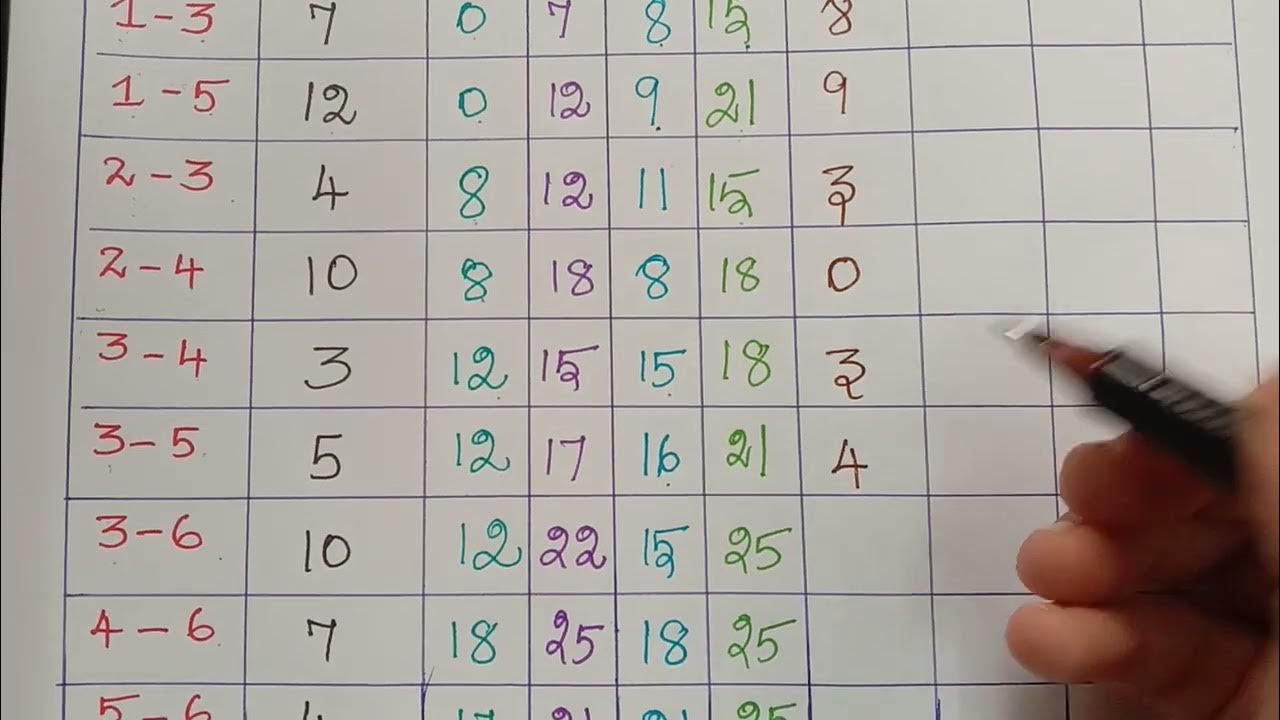 1-3 7 0 7 8 15 8
1-5 12 0 12 9 21 9
2-3 4 8 12 11 15 3
2-4 10 8 18 8 18 0
3-4 3 12 15 15 18 3
3-5 5 12 17 16 21 4
3-6 10 12 22 15 25
4-6 7 18 25 18 25
5-6 4 17 21 21 25